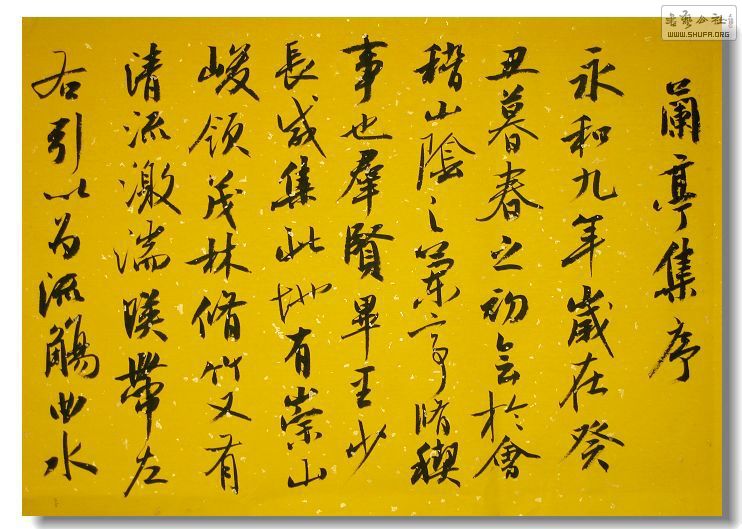 蘭亭集序
永和九年歲在癸
丑暮春之初会於會
稽山陰之蘭亭脩禊
事也羣賢畢至少
長咸集此地有崇山
峻領茂林脩竹又有
清流激湍暎帶左
右引以為流觴曲水
書藝公社
WWW.SHUFA.ORG